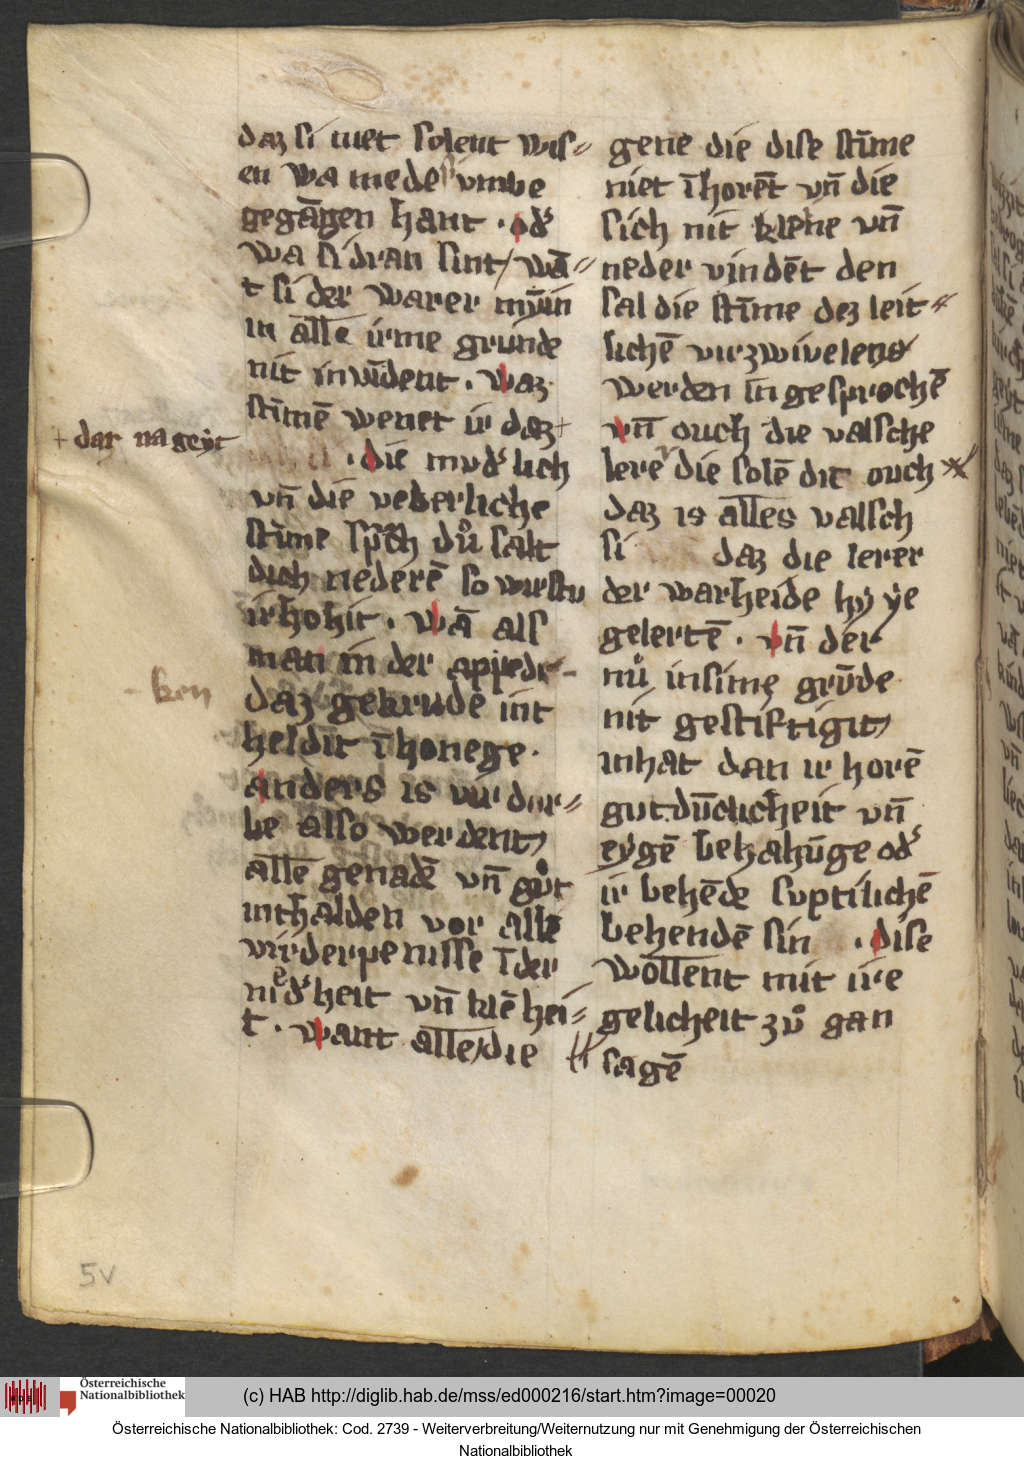 daz si niet solent wis⸗
en wa mede si vmbe
gegāgen hant · od'
wa si dran sint / wā⸗
t si der warer myīn
in alle irme grunde
nit invīdent . waz
stīmē wenet ir daz +
+ dar na geyt
· die mvd'lich
vn̄ die veberliche
stīme sprͨh du̇ salt
dich nederē so wirstu
irhohit . wā als
man in der
- ken
daz gekrude int
heldit īhonege ·
anders is vūr dor⸗
be also werdent
alle genadē vn̄ gůt
inthalden vor alle
virderpenisse īder
nied'heit vn̄ klēhei⸗
t · want alle / die
gene die dise stīme
niet īhorēt vn̄ die
sich nit klene vn̄
neder vindēt den
sal die stīme dez leit⸗
lichē virzwivelens
werden īn gesprochē
vn̄ ouch die valsche
lerer die solē dit ouch
daz is alles valsch
si daz die lerer
der warheide hy ye
gelertē . vn̄ der
nu̇ insime grūde
nit gestiftigit
inhat dan ir horē
gut.dūclicheit vn̄
eygē behahūge od'
ir behēde suptilichē
behendē sin · dise
wollent mit ire
gelicheit zů gan
sagē
5v
Österreichische
Nationalbibliothek
(c) HAB http://diglib.hab.de/mss/ed000216/start.htm?image=00020
Österreichische Nationalbibliothek: Cod. 2739 - Weiterverbreitung/Weiternutzung nur mit Genehmigung der Österreichischen
Nationalbibliothek